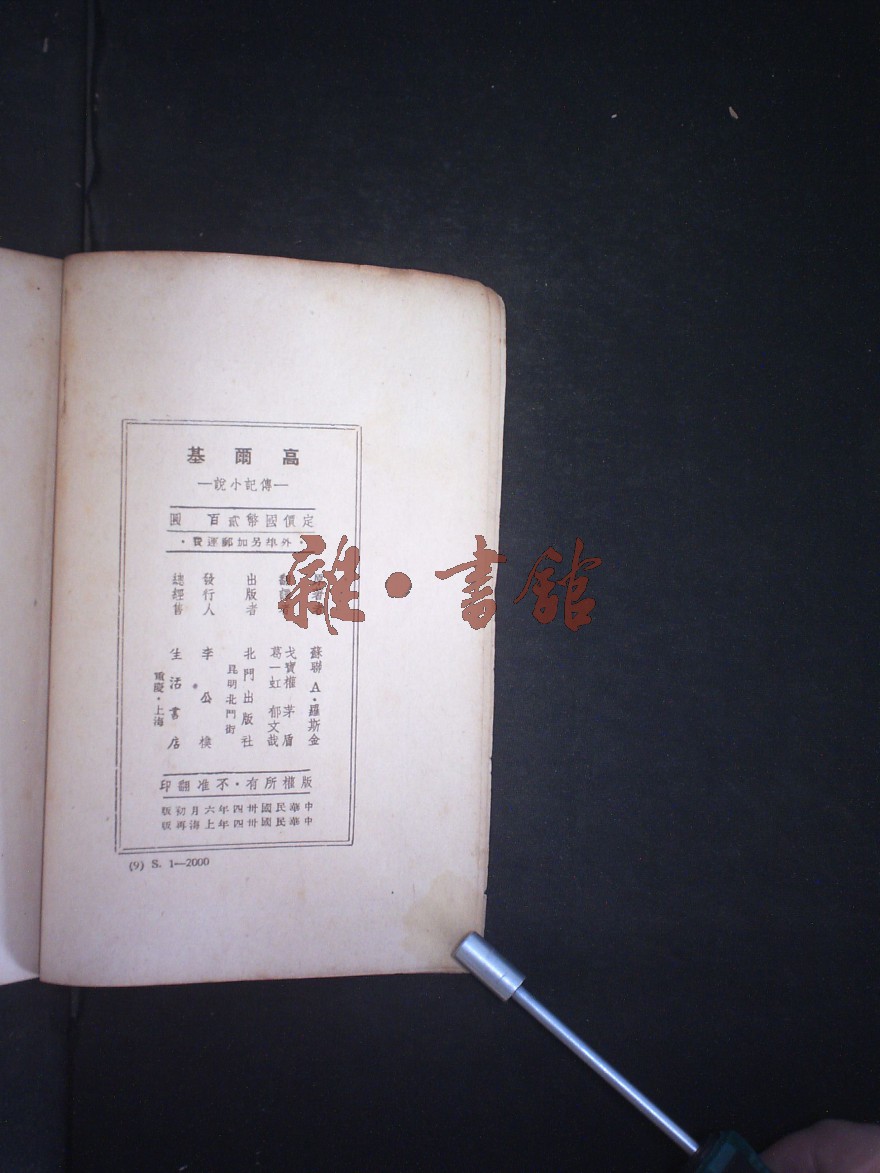 高爾基
—傳記小說—
定價國幣貳百圓
·外埠另加郵運費·
原著者 蘇聯 A·羅斯金
翻譯者 戈寶權 茅盾
葛一虹 郁文哉
出版者 北門出版社
昆明北門街
發行人 李公樸
總經售 生活書店
重慶·上海
版權所有·不准翻印
中華民國卅四年六月初版
中華民國卅四年上海再版
(9) S. 1—2000
雜·書館